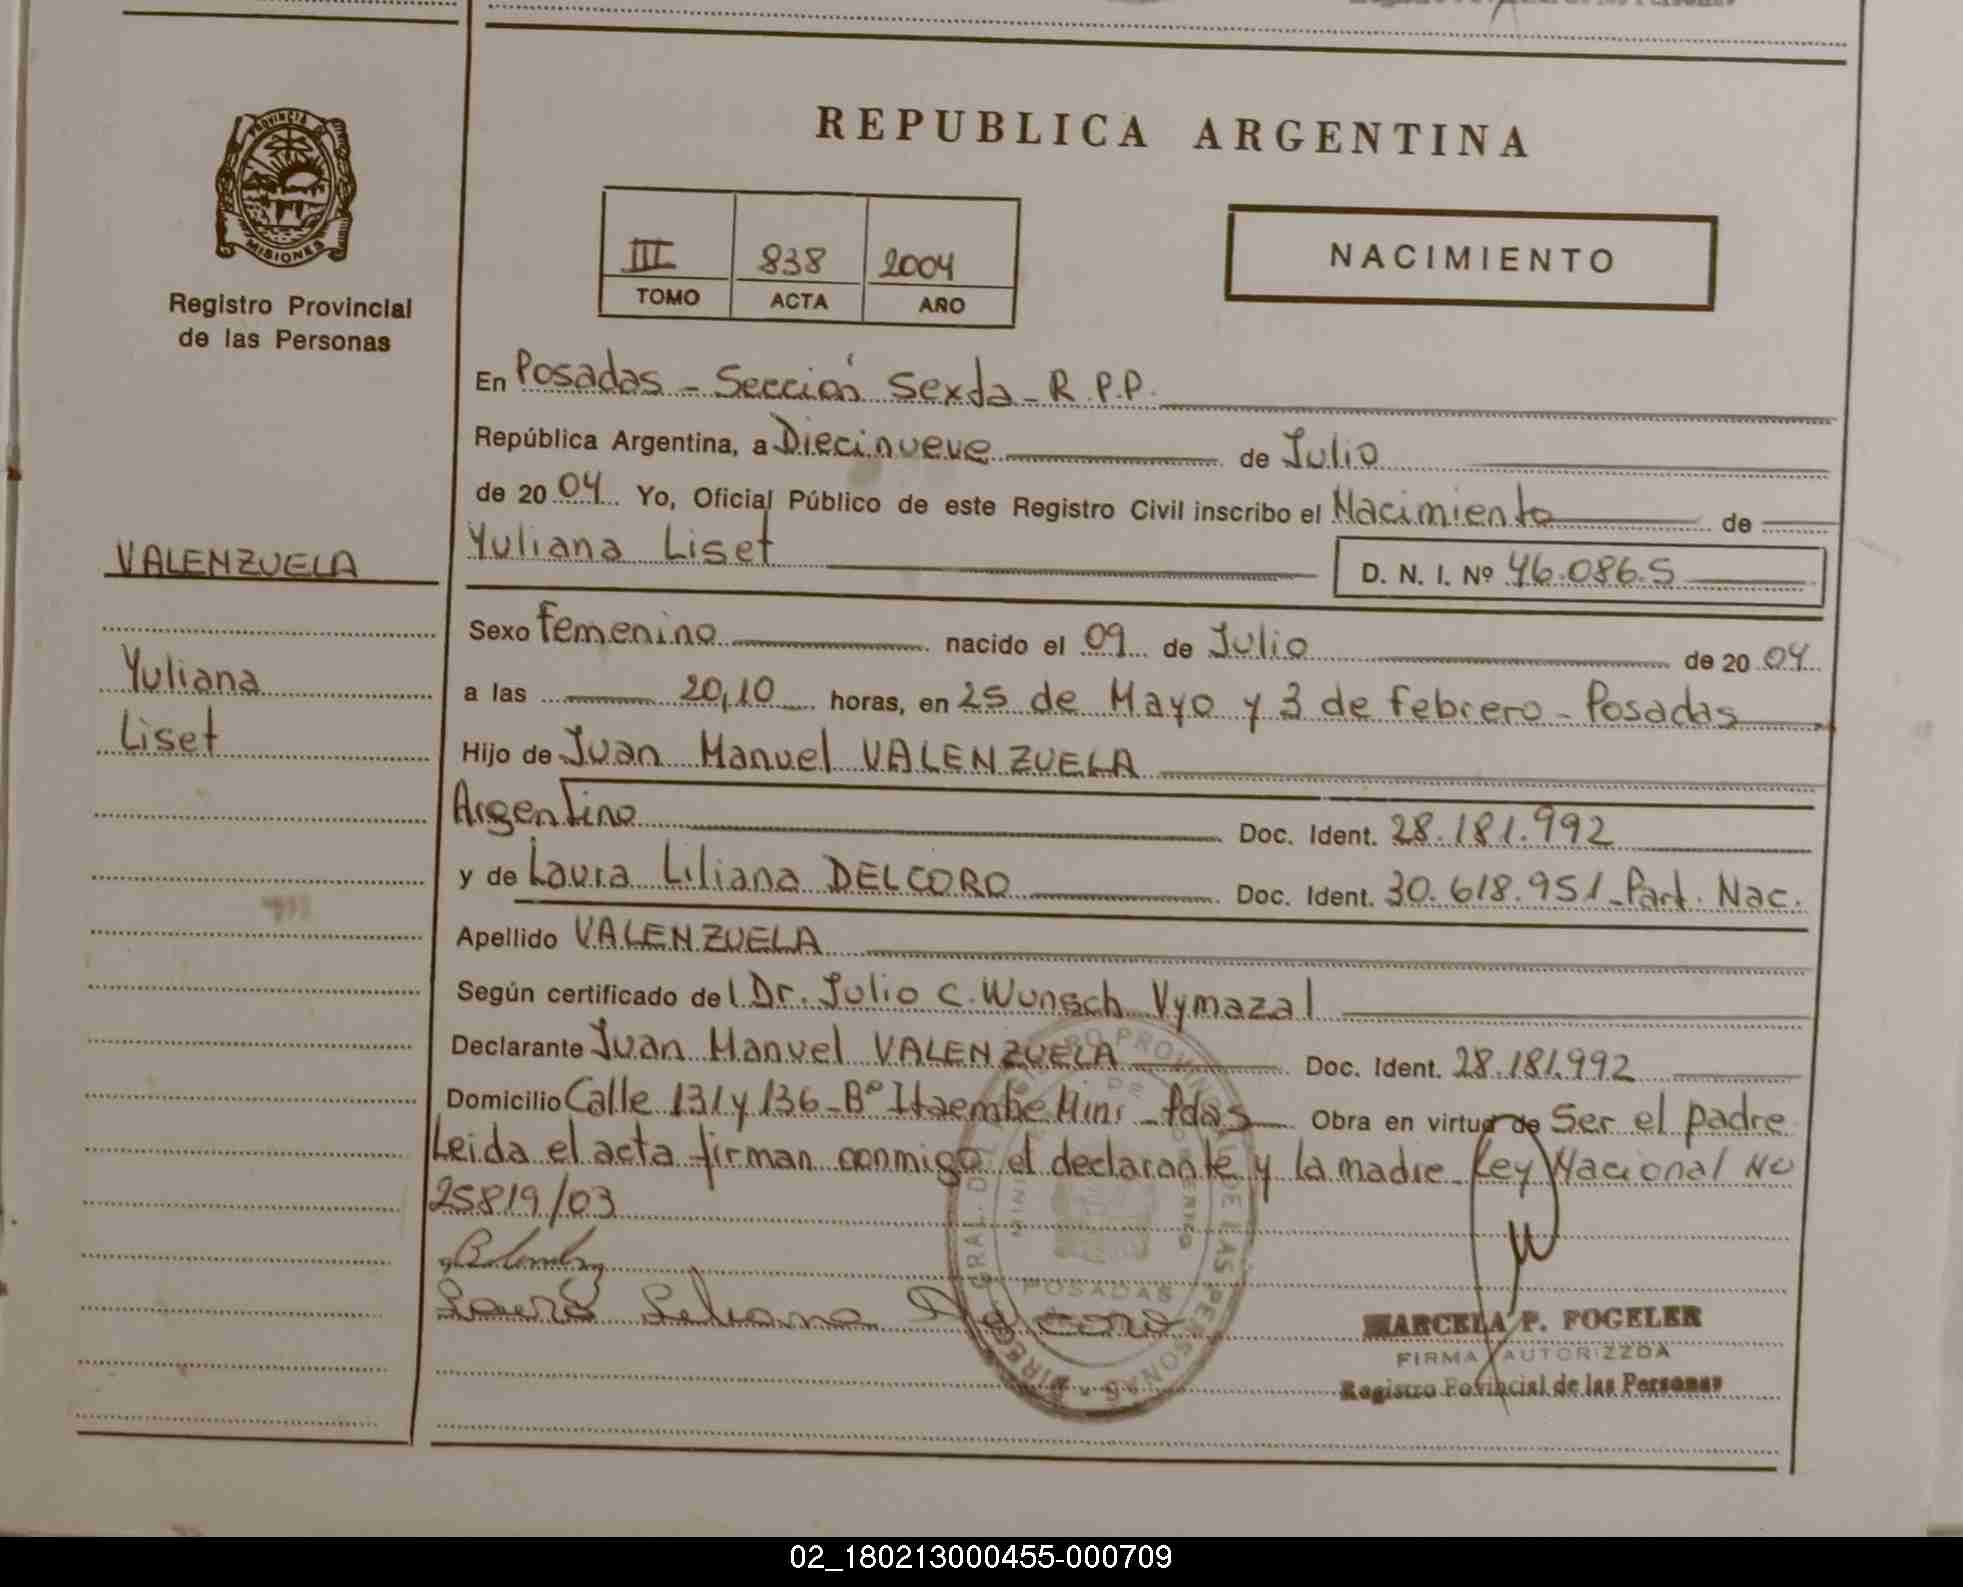 REPUBLICA ARGENTINA
PROVINCIA DE
MISIONES
Registro Provincial
de las Personas
III 838 2004
TOMO ACTA AÑO
NACIMIENTO
En Posadas - Sección Sexta - R.P.P.
República Argentina, a Diecinueve de Julio
de 2004 Yo, Oficial Público de este Registro Civil inscribo el Nacimiento de
Yuliana Liset D. N. I. Nº 46.086.5
VALENZUELA
Yuliana
Liset
Sexo Femenino nacido el 09 de Julio de 2004
a las 20,10 horas, en 25 de Mayo y 3 de Febrero - Posadas
Hijo de Juan Manuel VALENZUELA
Argentino Doc. Ident. 28.181.992
y de Laura Liliana DELCORO Doc. Ident. 30.618.951 - Part. Nac.
Apellido VALENZUELA
Según certificado del Dr. Julio C. Wunsch Vymazal
Declarante Juan Manuel VALENZUELA Doc. Ident. 28.181.992
Domicilio Calle 131 y 136 - Bº Itaembe Mini - Pdas Obra en virtud de Ser el padre
Leida el acta firman conmigo el declarante y la madre - Ley Nacional No
25819/03
Laura Liliana Delcoro
POSADAS
MARCELA P. FOGELER
FIRMA AUTORIZZDA
Registro Povincial de las Personas
02_180213000455-000709